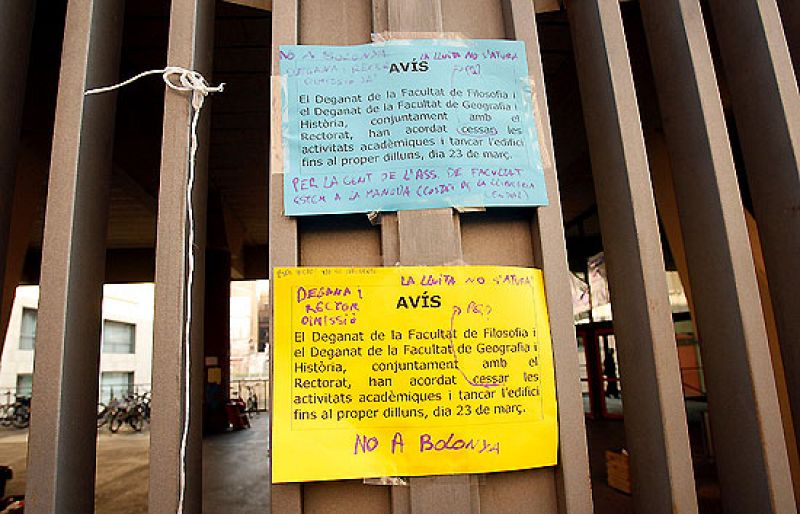 NO A BOLONYA LA LLUITA NO S'ATURA
DEGANA I RECTOR
DIMISSIÓ
AVÍS
El Deganat de la Facultat de Filosofia i
el Deganat de la Facultat de Geografia i
Història, conjuntament amb el
Rectorat, han acordat cessar les
activitats acadèmiques i tancar l'edifici
fins al proper dilluns, dia 23 de març.
PER LA GENT DE L'ASS. DE FACULTAT
ESTEM A LA (COSTAT DE LA LLIBRERIA
LA LLUITA NO S'ATURA
DEGANA i
RECTOR
DIMISSIÓ
AVÍS
El Deganat de la Facultat de Filosofia i
el Deganat de la Facultat de Geografia i
Història, conjuntament amb el
Rectorat, han acordat cessar les
activitats acadèmiques i tancar l'edifici
fins al proper dilluns, dia 23 de març.
NO A BOLONYA